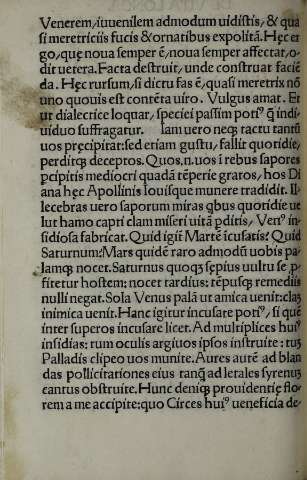 Venerem, iuuenilem admodum uidistis, & qua
si meretriciis fucis & ornatibus expolitã. Hęc er
go, que noua semper ẽ, noua semper affectat, o‑
dit uetera. Facta destruit, unde construat faciẽ
da. Hęc rursum, si dictu fas ẽ, quasi meretrix nõ
uno quouis est contẽta uiro. Vulgus amat. Et
ut dialectice loquar, speciei passim potiꝰ q̃ indi
uiduo suffragatur. Iam uero neqꝫ tactu tantũ
uos pręcipitat: sed etiam gustu, fallit quotidie,
perditqꝫ deceptos. Quos. n. uos i rebus sapores
pcipitis mediocri quadã tẽperie graros, hos Di
ana hęc Apollinis Iouisque munere tradidit. Il‑
lecebras uero saporum miras qbus quotidie ue
lut hamo capti clam miseri uitã pditis, Venꝰ in‑
sidiosa fabricat. Quid igiť Martẽ icusatis? Quid
Saturnum? Mars quidẽ raro admodũ uobis pa‑
lamqꝫ nocet. Saturnus quoqꝫ sępius uultu se p‑
fitetur hostem: nocet tardius: tẽpusqꝫ remediis
nulli negat. Sola Venus palã ut amica uenit: clã
inimica uenit. Hanc igitur incusare potiꝰ, si quẽ
inter superos incusare licet. Ad multiplices huiꝰ
insidias: tum oculis argiuos ipsos instruite: tuꝫ
Palladis clipeo uos munite. Aures autẽ ad blan
das pollicitationes eius tanq̃ ad letales syrenuꝫ
cantus obstruite. Hunc deniqꝫ prouidentię flo‑
rem a me accipite: quo Circes huiꝰ ueneficia de‑